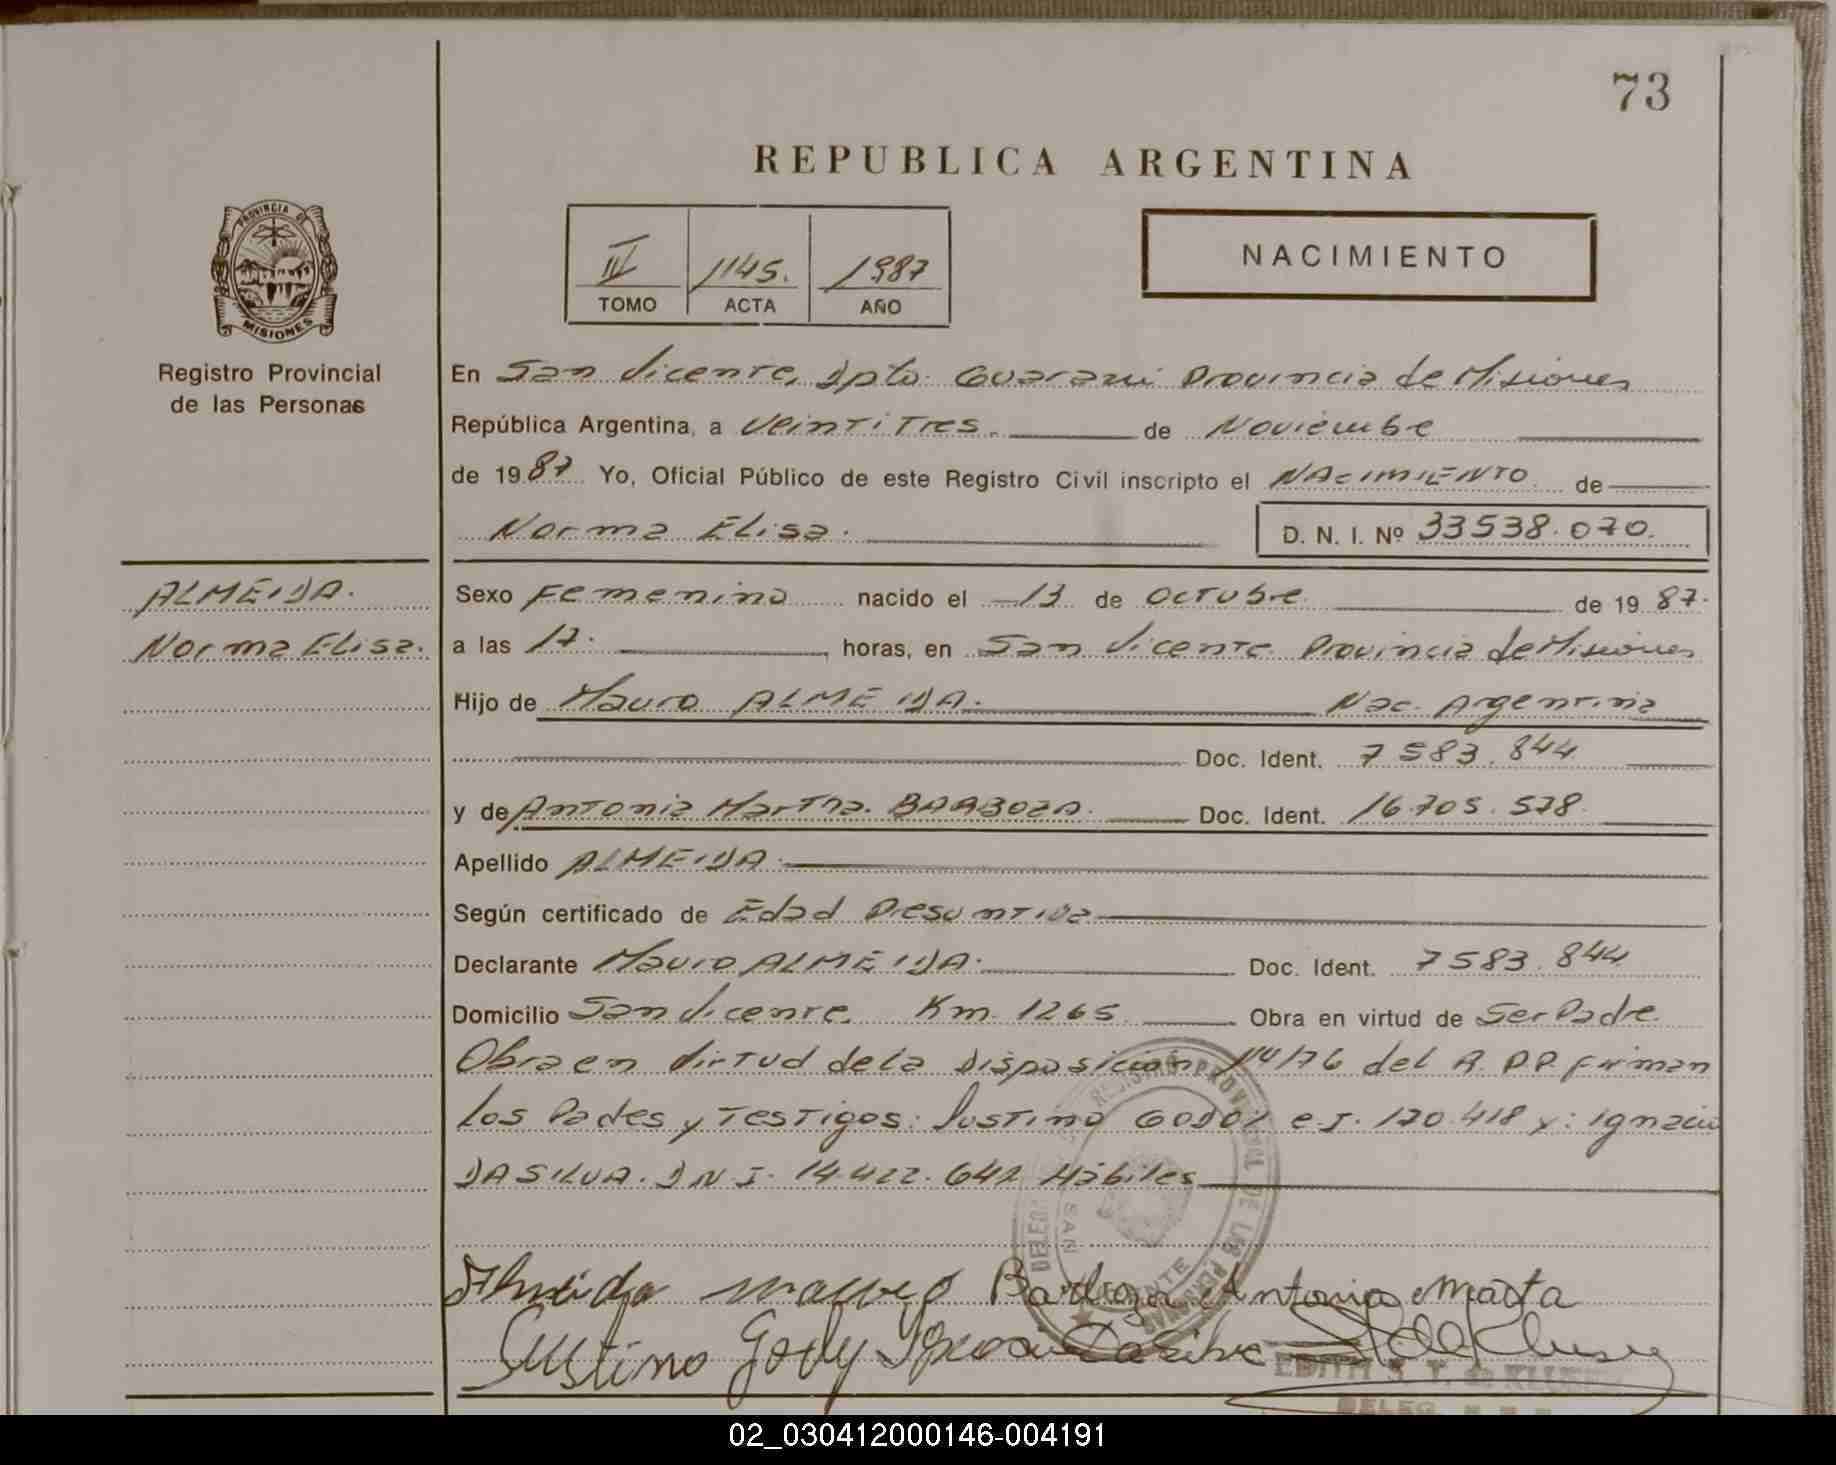 73
REPUBLICA ARGENTINA
PROVINCIA DE
MISIONES
Registro Provincial
de las Personas
IV 1145. 1987
TOMO ACTA AÑO
NACIMIENTO
En San Vicente, Dpto. Guarani Provincia de Misiones
República Argentina, a Veintitres. de Noviembre
de 1987 Yo, Oficial Público de este Registro Civil inscripto el NACIMIENTO de
Norma Elisa. D. N. I. Nº 33538.070.
ALMEIDA.
Norma Elisa.
Sexo Femenino nacido el 13 de Octubre de 1987.
a las 17. horas, en San Vicente Provincia de Misiones
Hijo de Mauro ALMEIDA. Nac. Argentina
Doc. Ident. 7583.844
y de Antonia Martha. BARBOZA. Doc. Ident. 16.705.578.
Apellido ALMEIDA.
Según certificado de Edad Presuntiva
Declarante Mauro ALMEIDA. Doc. Ident. 7583.844
Domicilio San Vicente. Km. 1265. Obra en virtud de Ser Padre.
Obra en Virtud de la Disposición 14/76 del R.P.P. firman
los Pades y Testigos: Justino GODOY e I. 170.418 y: Ignacio
DASILVA. DNI. 14.422.641 Hábiles
Almeida Mauro Barboza Antonia Marta
Justino Godoy Ignacio Dasilva
EDITH S. T. de
DELEG.
02_030412000146-004191